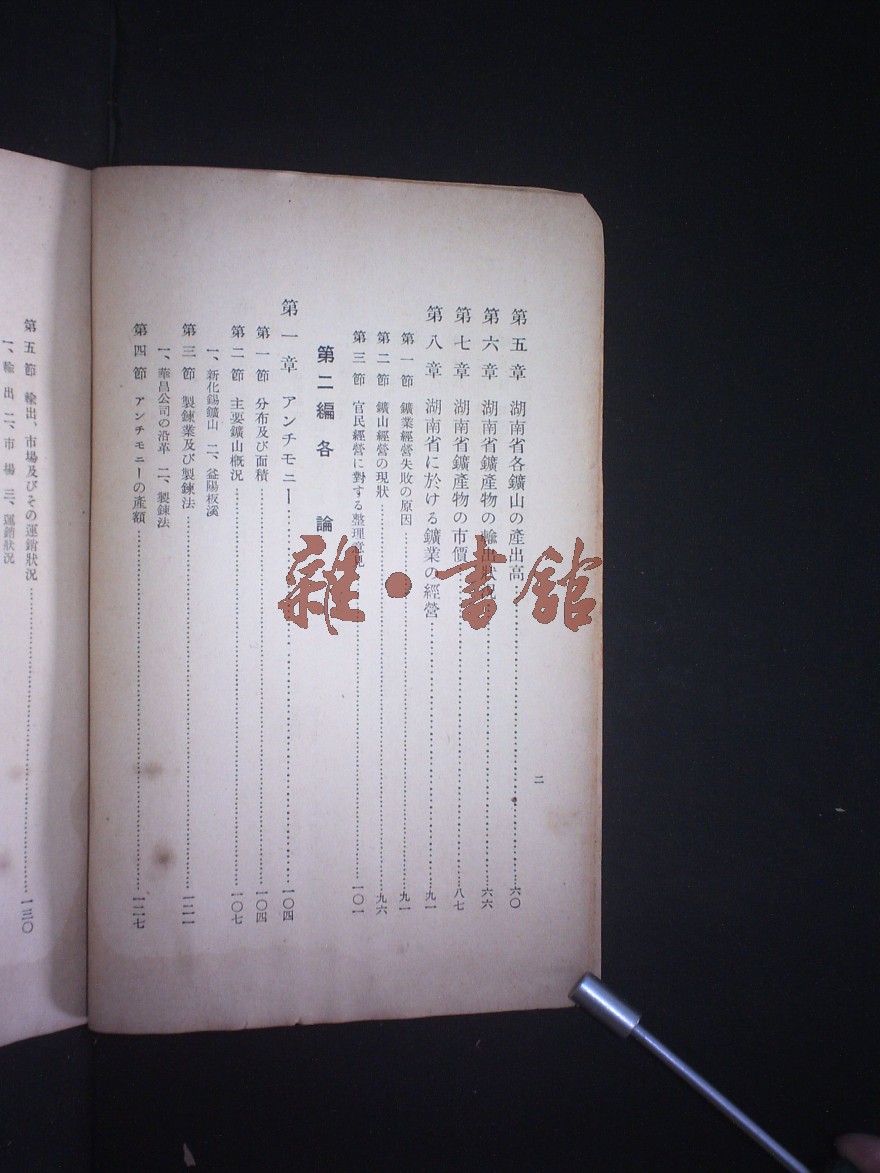 二
第五章 湖南省各鑛山の產出高…………六〇
第六章 湖南省鑛產物の輸出狀況…………六六
第七章 湖南省鑛產物の市價…………八七
第八章 湖南省に於ける鑛業の經營…………九一
第一節 鑛業經營失敗の原因…………九一
第二節 鑛山經營の現狀…………九六
第三節 官民經營に對する整理意見…………一〇一
第二編 各論
第一章 アンチモニー…………一〇四
第一節 分布及び面積…………一〇四
第二節 主要鑛山槪況…………一〇七
一、新化錫鑛山 二、益陽板溪
第三節 製鍊業及び製鍊法…………一二一
一、華昌公司の沿革 二、製鍊法
第四節 アンチモニーの產額…………一二七
第五節 輸出、市場及びその運銷狀況…………一三〇
一、輸出 二、市場 三、運銷狀況
雜·書館